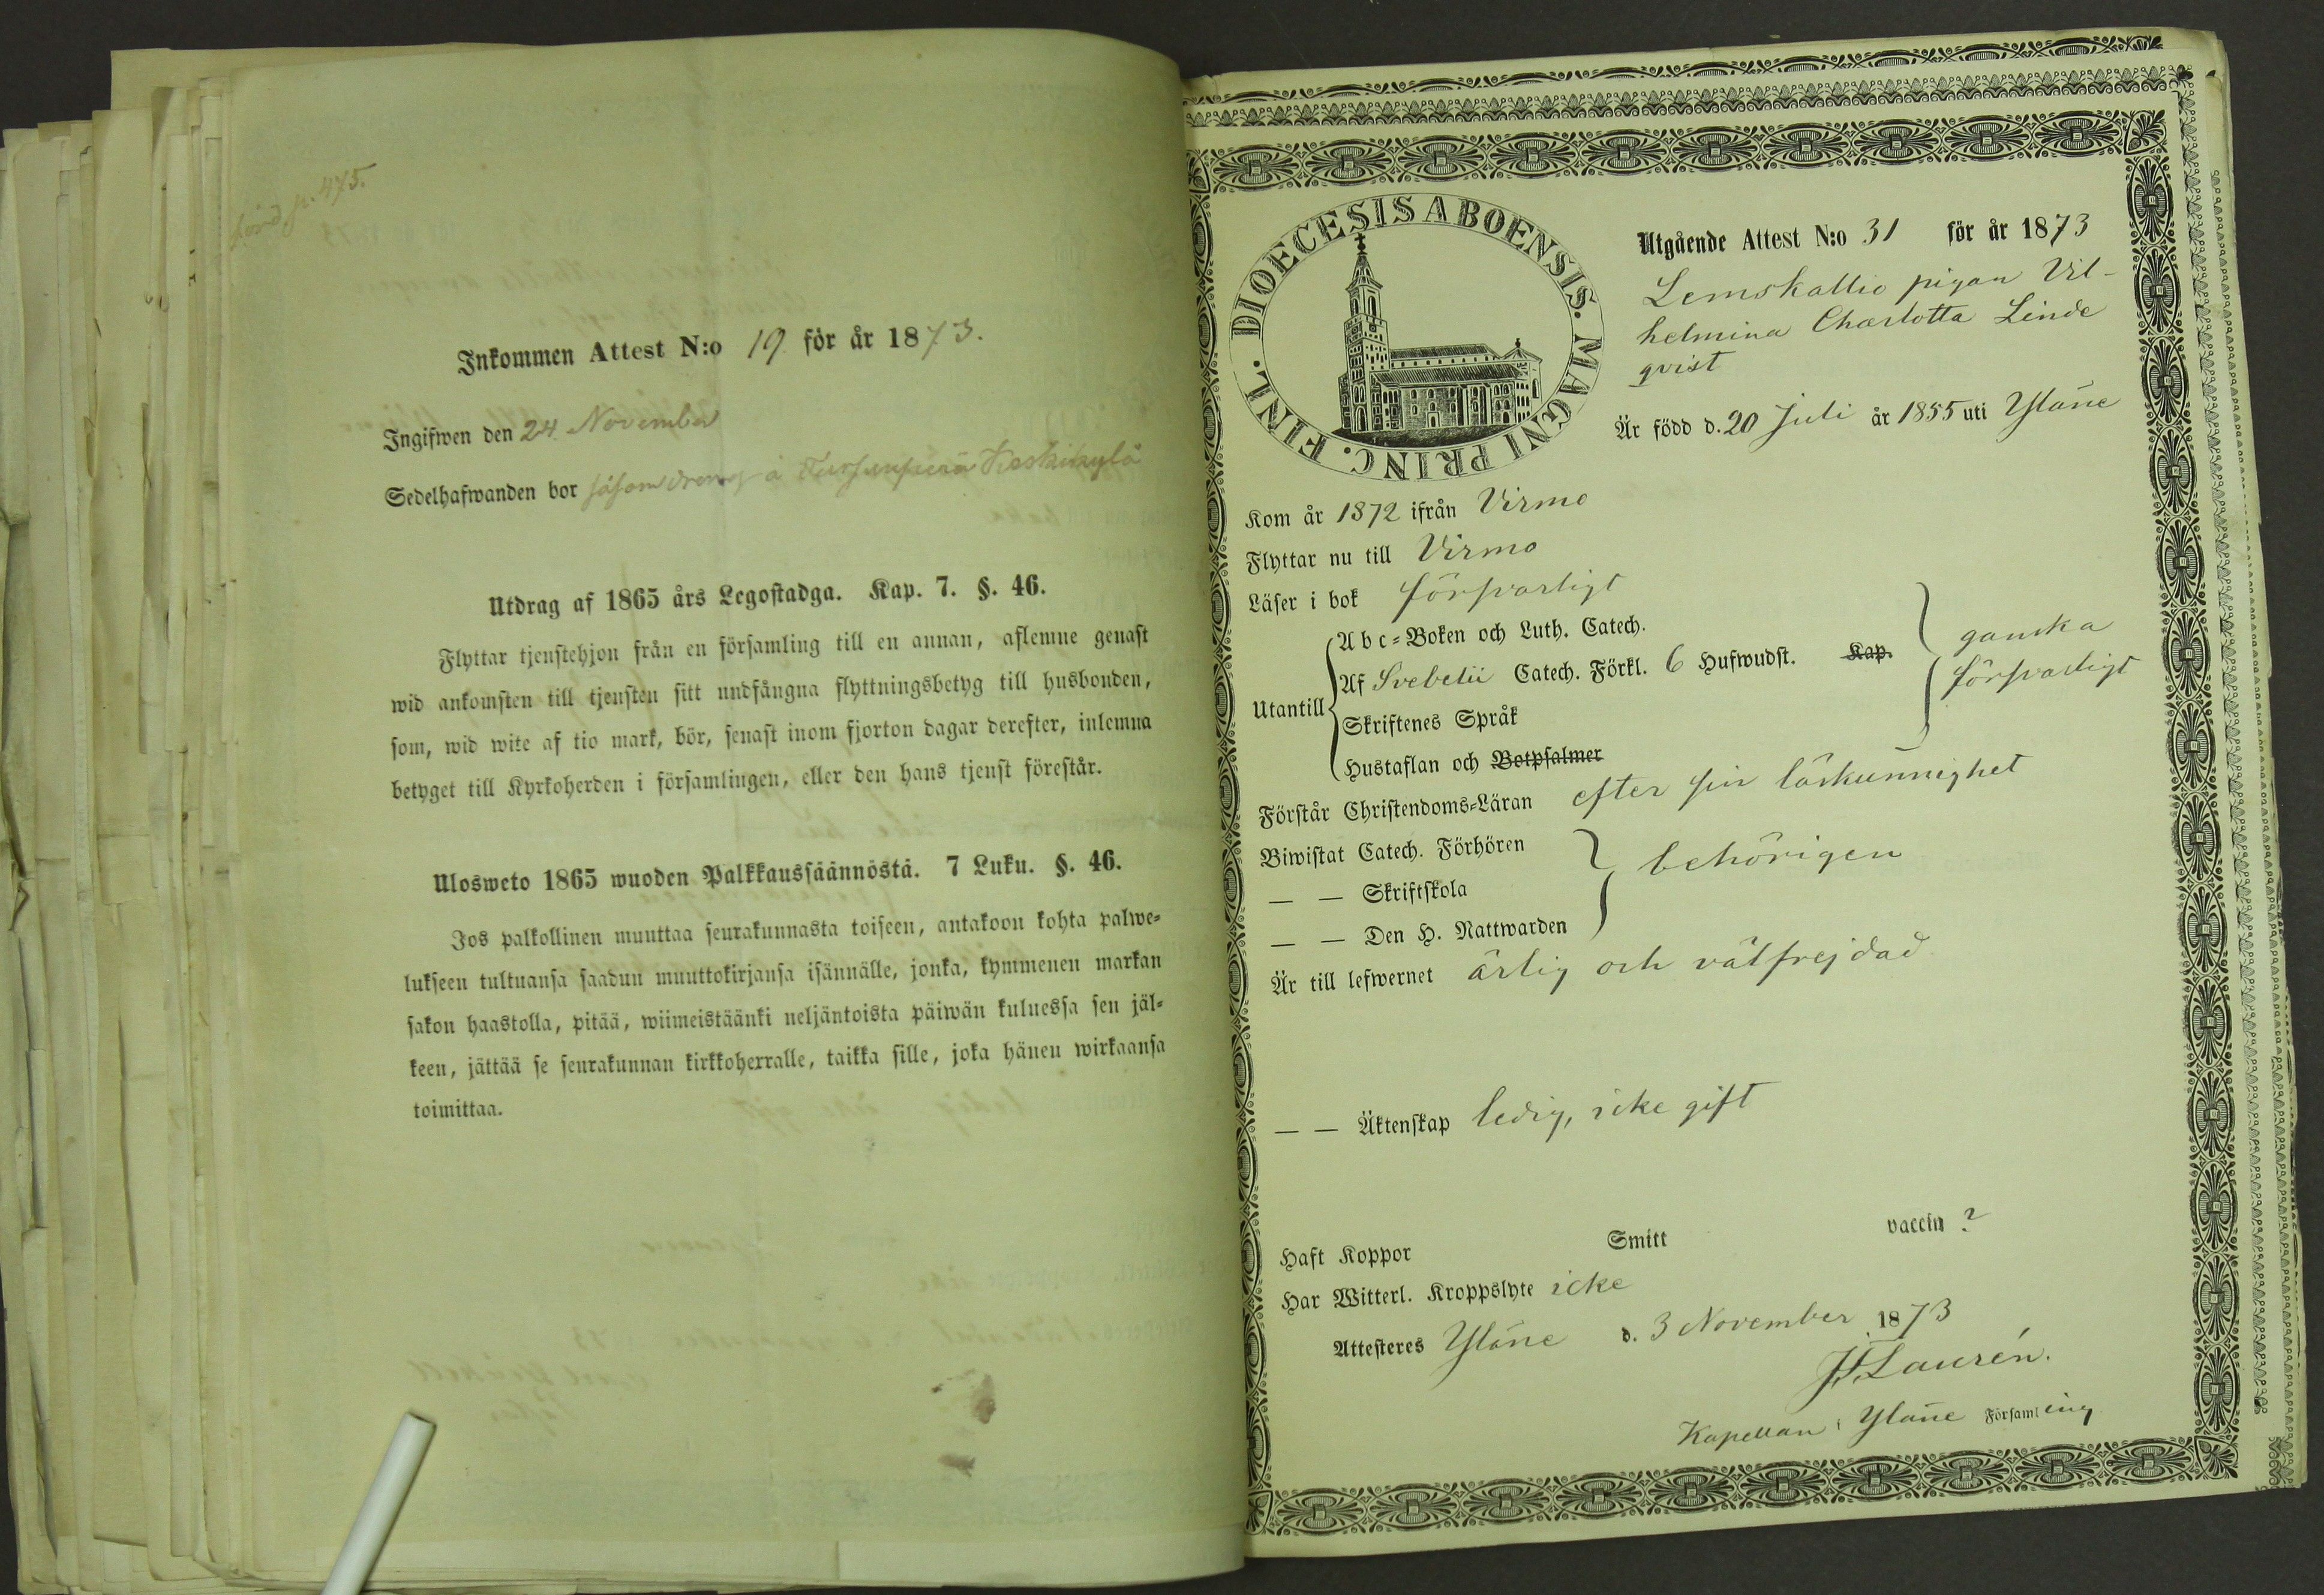 förd p. 475.
Inkommen Attest N:o 19 för år 1873.
Ingifwen den 24 November
Sedelhafwanden bor såsom dreng å Keskikylä
Utdrag af 1865 års Legostadga. Kap. 7. §. 46.
Flyttar tjenstehjon från en församling till en annan, aflemne genast
wid ankomsten till tjensten sitt undfångna flyttningsbetyg till husbonden,
som, wid wite af tio mark, bör, senast inom fjorton dagar derefter, inlemna
betyget till Kyrkoherden i församlingen, eller den hans tjenst förestår.
Ulosweto 1865 wuoden Palkkaussäännöstä. 7 Luku. §. 46.
Jos palkollinen muuttaa seurakunnasta toiseen, antakoon kohta palwe-
lukseen tultuansa saadun muuttokirjansa isännälle, jonka, kymmenen markan
sakon haastolla, pitää, wiimeistäänki neljäntoista päiwän kuluessa sen jäl-
keen, jättää se seurakunnan kirkkoherralle, taikka sille, joka hänen wirkaansa
toimittaa.
DIOECESIS ABOENSIS. MAGNI PRINC. FINL.
Utgående Attest N:o 31 för år 1873
Lemskallio pigan Vil-
helmina Charlotta Linde
qvist
Är född d. 20 Juli år 1855 uti Yläne
Kom år 1872 ifrån Virmo
Flyttar nu till Virmo
Läser i bok försvarligt
Utantill
Abc-Boken och Luth. Catech.
Af Svebelii Catech. Förkl. 6 Hufwudst. Kap.
Skriftenes Språk
Hustaflan och Botpsalmer
ganska
försvarligt
Förstår Christendoms-Läran efter sin läskunnighet
Biwistat Catech. Förhören
— — Skriftskola
— — Den H. Nattwarden
behörigen
Är till lefwernet ärlig och välfrejdad
— — Äktenskap ledig, icke gift
Haft Koppor Smitt vaccin ?
Har Witterl. Kroppslyte icke
Attesteres Yläne d. 3 November 1873
Laurén.
Kapellan i Yläne Församling